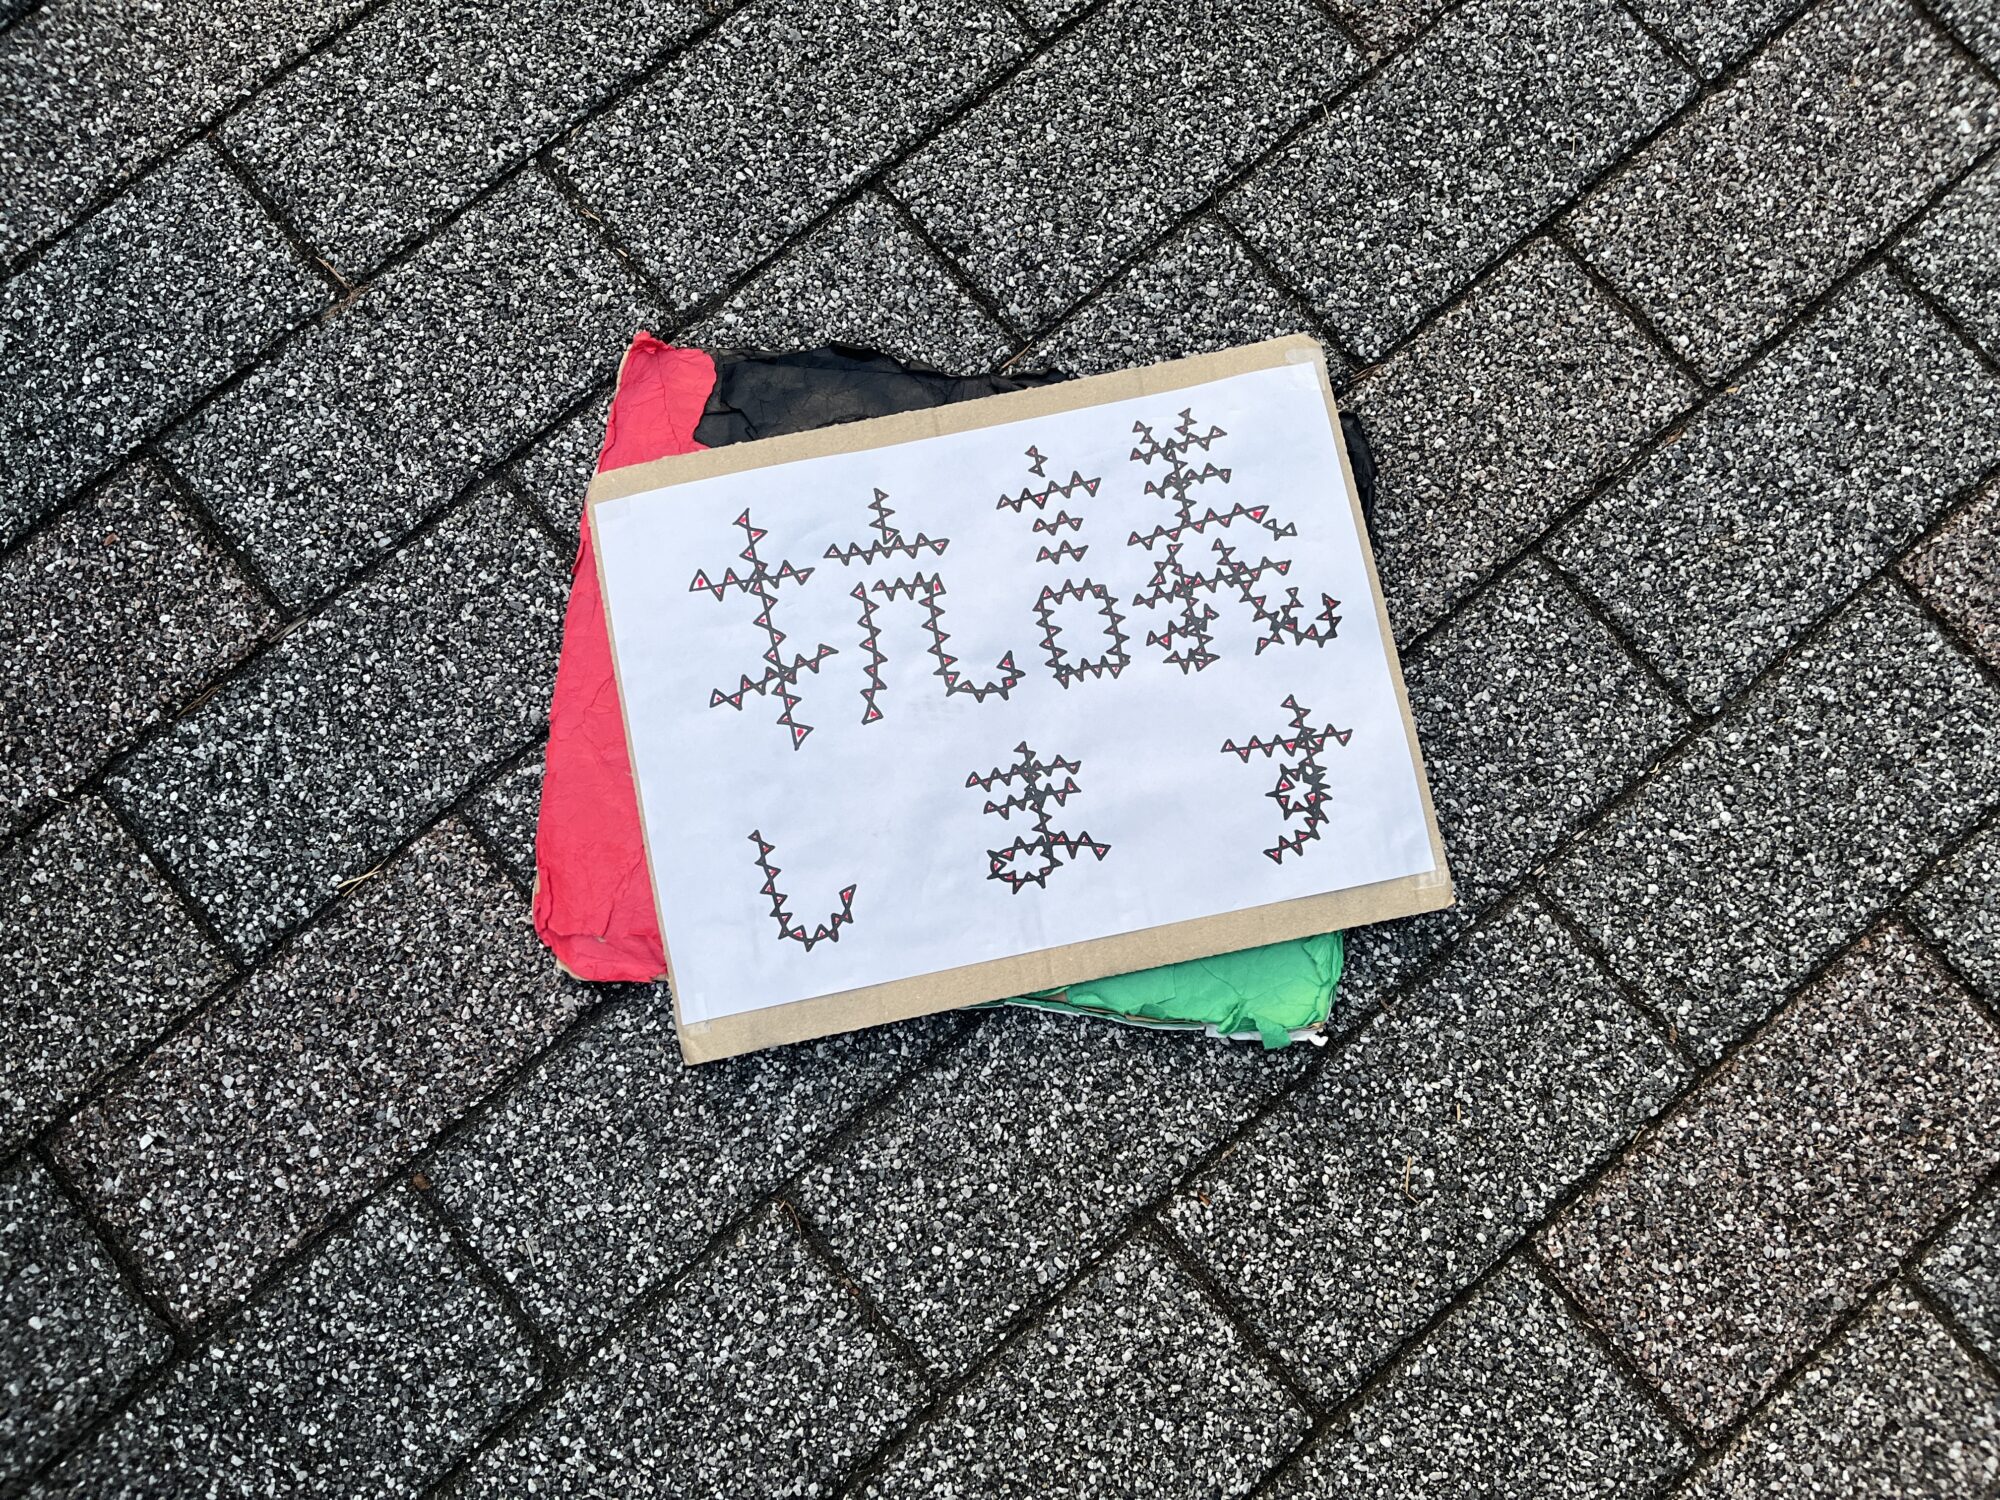 抗議
します